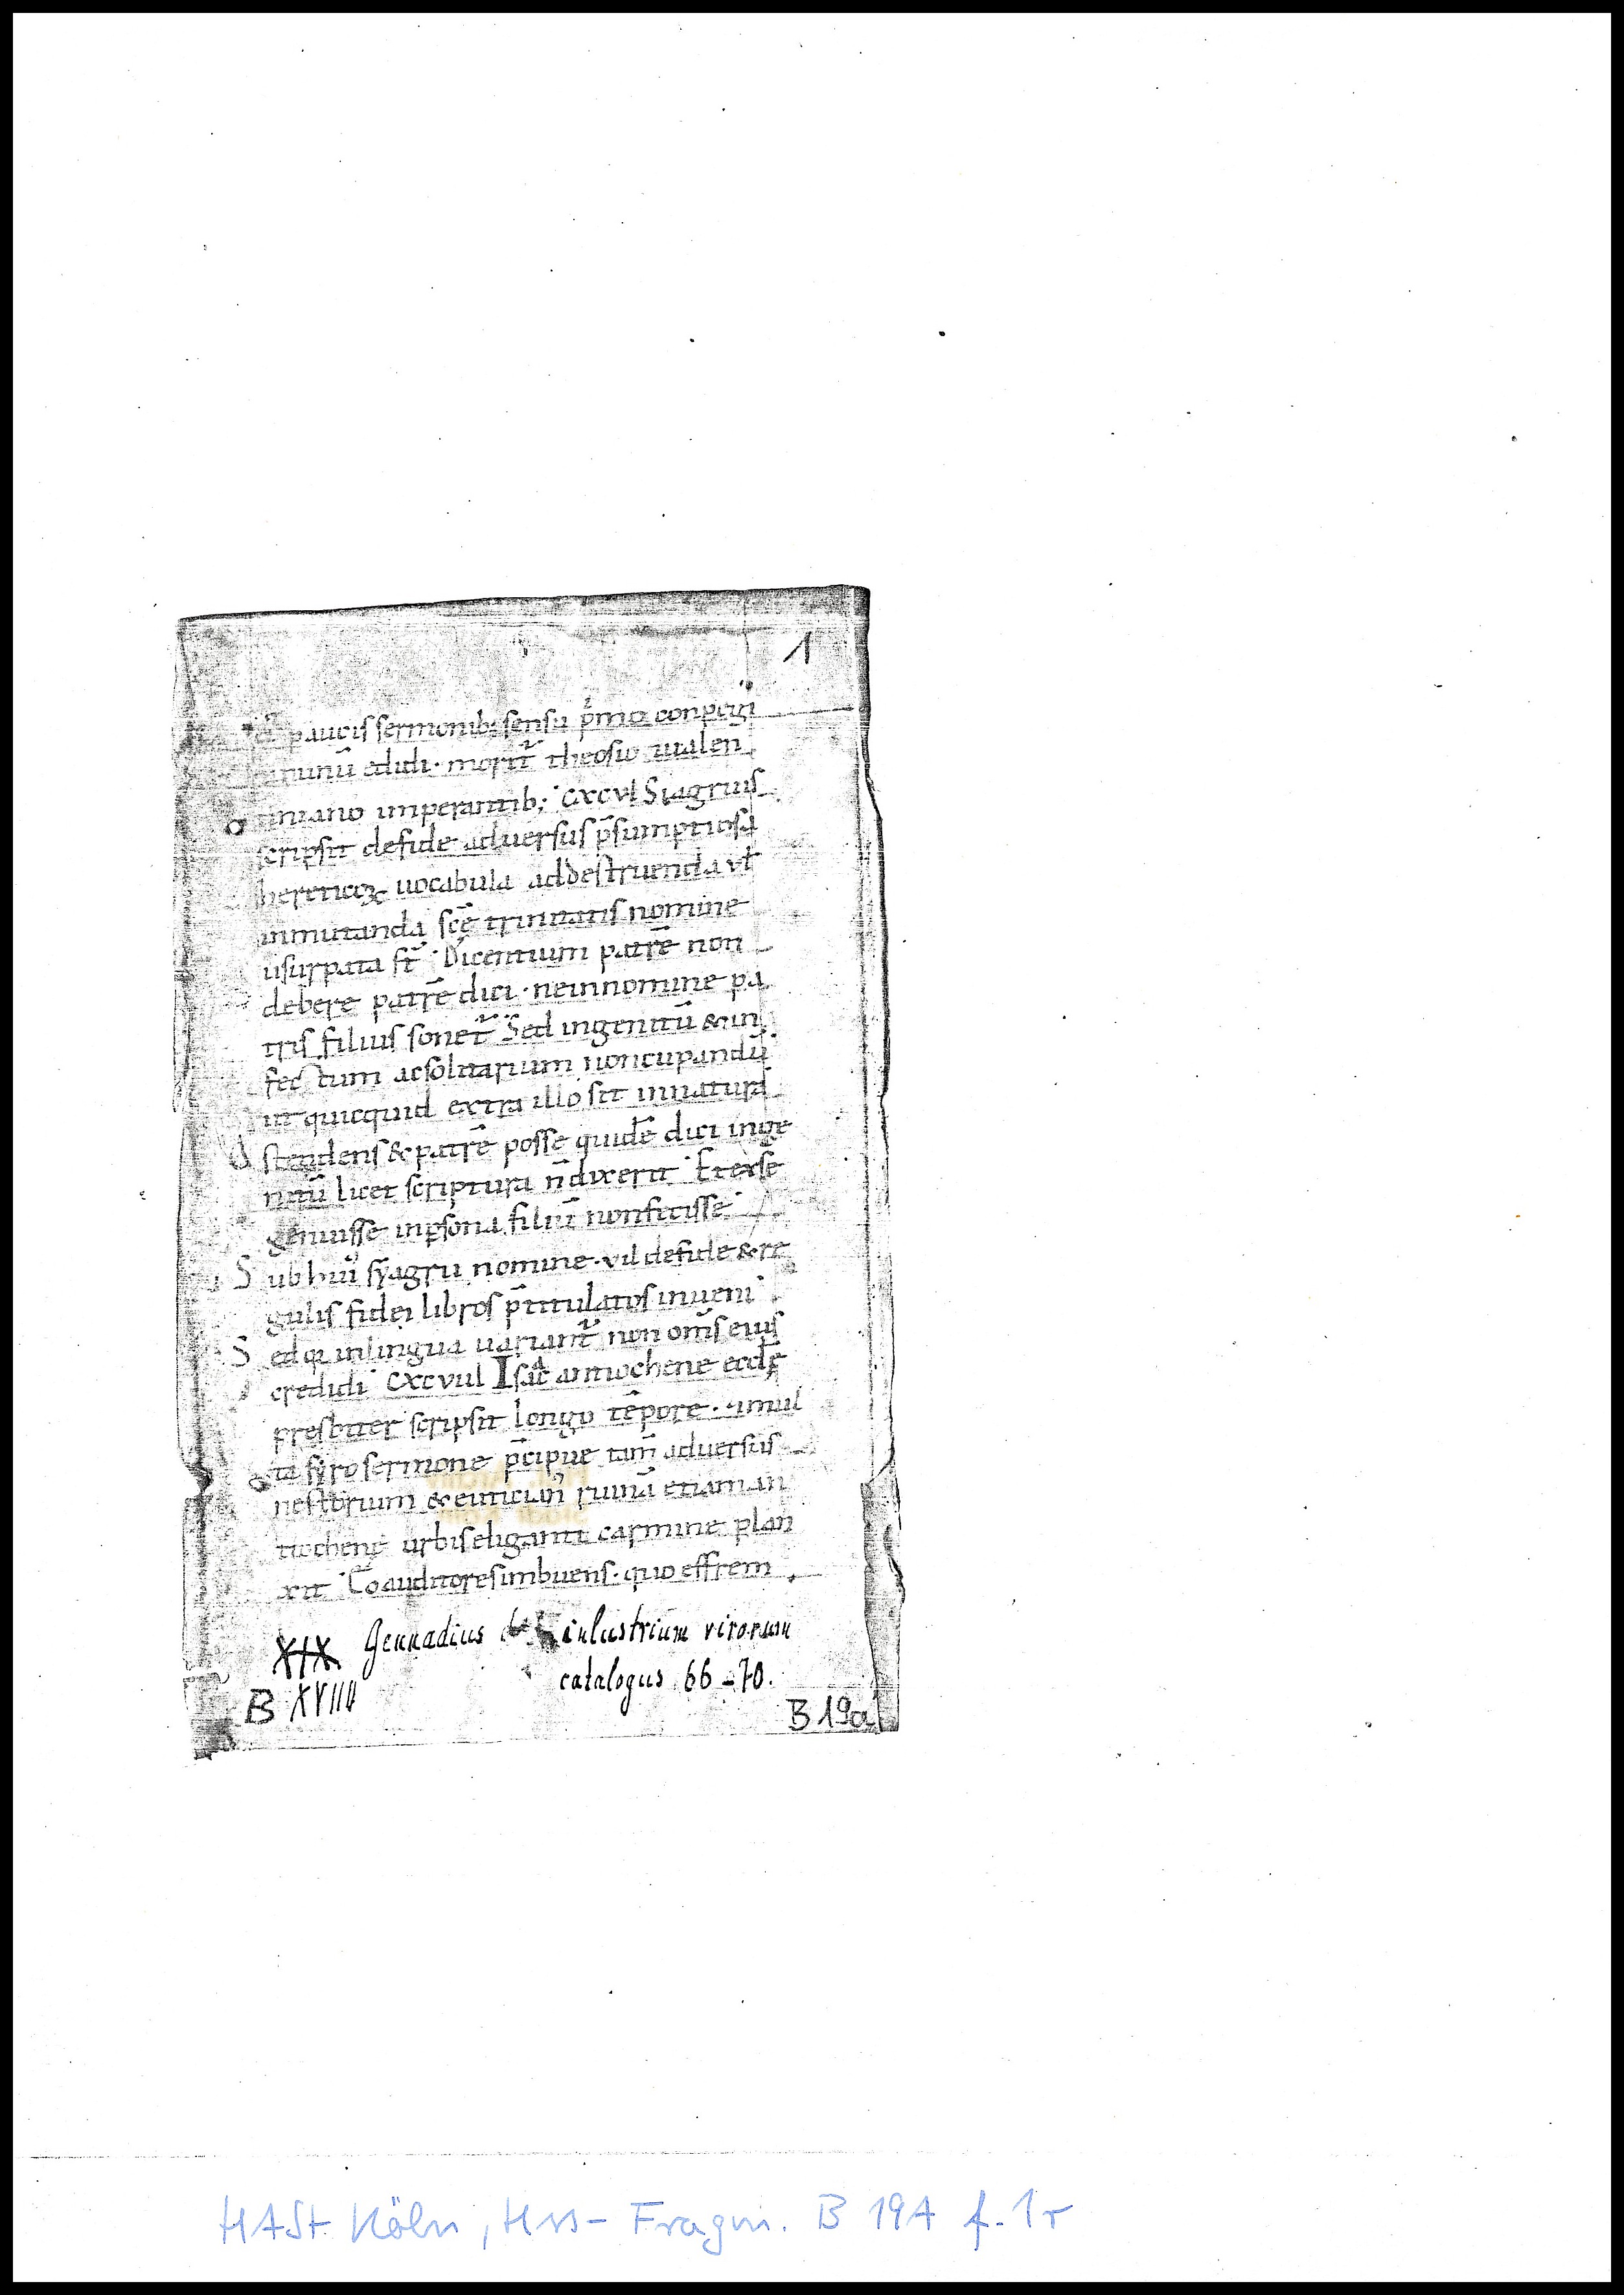 1
paucis sermonib; sensu p̄mo conpegi
minū edidi · morit̄ theosio ualen
tiniano imperantib; CXCVI Siagrius
scripsit defide aduersus p̄sumptiosa
hereticoꝝ uocabula addestruenda vł
inmutanda scę̄ trinitatis nomine
usurpata st̄ Dicentium patrē non
debere patrē dici · neinnomine pa
tris filius sonet̄ Sed ingenitū & in
fec tum acsolitarium noncupandū
ut quicquid extra illo sit innatura
stendens & patrē posse quidē dici inge
nitū licet scriptura n̄ dixerit Et exse
genuisse inpsona filiū nonfecisse
Sub hui᾽ syagrii nomine · vii defide & re
gulis fidei libros p̄titulatos inueni
Sed qi inlingua uariant̄ non om̄s eius
credidi CXCVIII Isac antiochene eccłę
presbiter scripsit longo tēpore · &mul
ta syro sermone p̄cipue tam̄ aduersus
nestorium & eutician̄ ruinā etiam an
tiochene urbis eliganti carmine plan
xit Eo auditores imbuens · quo effrem
XIX Gennadius de inlustrium virorum
catalogus 66-70.
B XVIIII
B 19a
HASt. Köln, Hss-Fragm. B 19A f. 1r